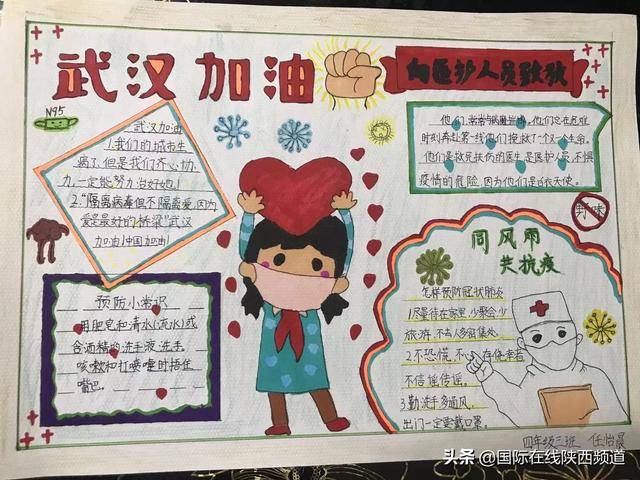 武汉加油
向医护人员致敬
N95
武汉加油
1.我们的城市生
病了,但是我们齐心协
力,一定能努力治好她!
2."隔离病毒但不隔离爱,因为
爱是最好的桥梁"武汉
加油!中国加油!
他们常常与病魔半搏,他们总在危难
时刻奔赴第一线,他们挽救了一个又一个生命。
他们是救死扶伤的医生,是医护人员,不惧
疫情的危险,因为他们是白衣天使。
野味
预防小常识
用肥皂和清水(流水)或
含酒精的洗手液洗手。
咳嗽和打喷嚏时捂住
嘴巴。
同风雨
共抗疫
怎样预防冠状肺炎
1.尽量待在家里,少聚会少
旅游,不去人多密集处。
2.不恐慌,不心存侥幸
不信谣传谣。
3.勤洗手多通风,
出门一定要戴口罩。
四年级三班 任怡晨
头条 @国际在线陕西频道